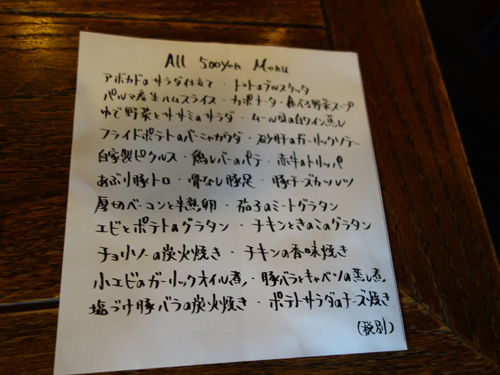 All 500yen Menu
アボカドのサラダ仕立て・トマトのブルスケッタ
パルマ産生ハムスライス・カポナータ・食べる野菜スープ
ゆで野菜とササミのサラダ・ムール貝の白ワイン蒸し
フライドポテトのバーニャカウダ・砂肝のガーリックソテー
自家製ピクルス・鶏レバーのパテ・赤牛のトリッパ
あぶり豚トロ・骨なし豚足・豚チーズカツレツ
厚切ベーコンと半熟卵・茄子のミートグラタン
エビとポテトのグラタン・チキンときのこのグラタン
チョリソーの炭火焼き・チキンの香味焼き
小エビのガーリックオイル煮・豚バラとキャベツの蒸し煮
塩づけ豚バラの炭火焼き・ポテトサラダのチーズ焼き
(税別)